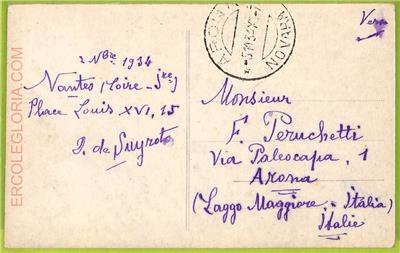 ERCOLEGLORIA.COM
2 Nbre 1934
Nantes (Loire - Jre)
Place Louis XVI, 15
Verso
Monsieur
F. Peruchetti
Via Paleocapa, 1
Arona
(Laggo Maggiore - Italia)
Italie